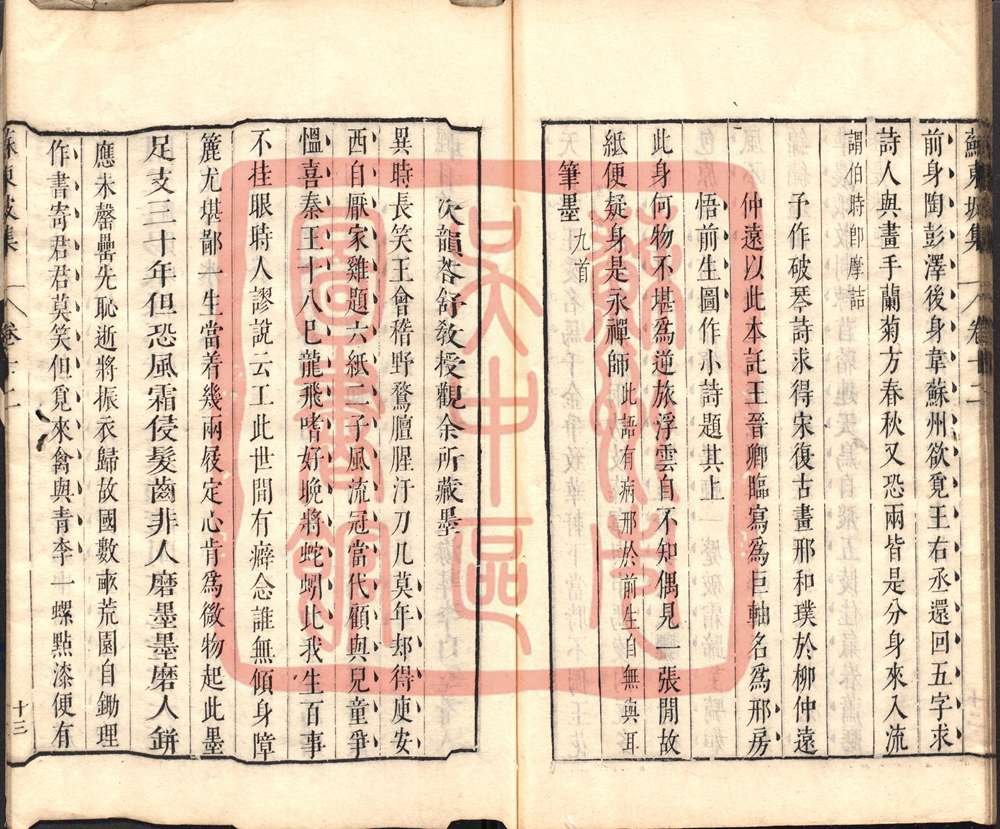 蘇東坡集 卷十二
前身陶彭澤後身韋蘇州欲覓王右丞還回五字求
詩人與畫手蘭菊方春秋又恐兩皆是分身來入流
謂伯時卽摩詰
予作破琴詩求得宋復古畫邢和璞於柳仲遠
仲遠以此本託王晉卿臨寫爲巨軸名爲邢房
悟前生圖作小詩題其上
此身何物不堪爲逆旅浮雲自不知偶見一張閒故
紙便疑身是永禪師 此語有病邢於前生自無與耳
筆墨 九首
次韻荅舒敎授觀余所藏墨
異時長笑王會稽野鶩膻腥汙刀几莫年却得庾安
西自厭家雞題六紙二子風流冠當代顧與兒童爭
慍喜秦王十八巳龍飛嗜好晚將蛇蚓比我生百事
不挂眼時人謬說云工此世間有癖念誰無傾身障
簏尤堪鄙一生當着幾兩屐定心肯爲微物起此墨
足支三十年但恐風霜侵髮齒非人磨墨墨磨人缾
應未罄罍先恥逝將振衣歸故國數畝荒園自鋤理
作書寄君君莫笑但覓來禽與青李一螺點漆便有
蘇東坡集 卷十二
十三
蘇州市
吳中區
圖書館